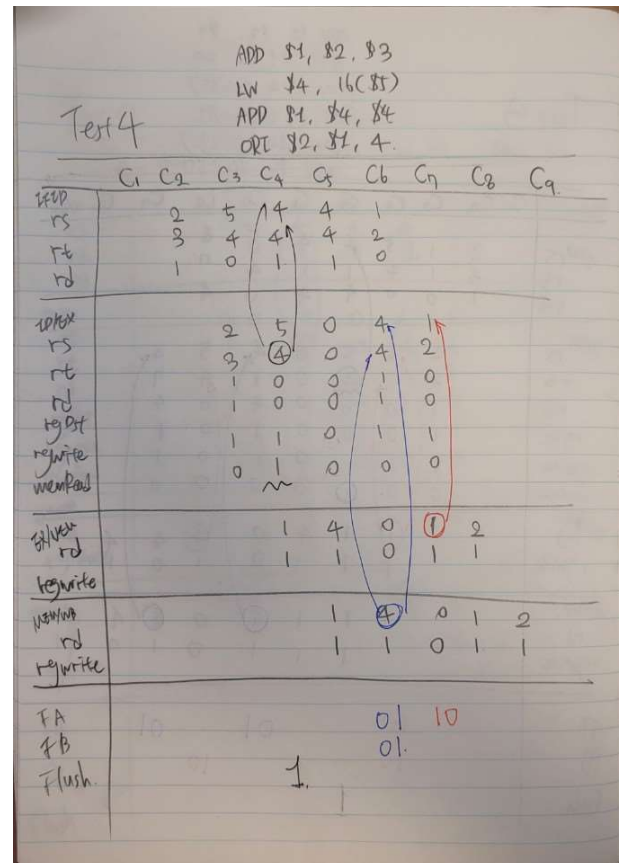 ADD $1, $2, $3
LW $4, 16($5)
Test 4
ADD $1, $4, $4
ORI $2, $1, 4.
C1 C2 C3 C4 C5 C6 C7 C8 C9.
IF/ID
rs 2 5 4 4 1
rt 3 4 4 4 2
rd 1 0 1 1 0
ID/EX
rs 2 5 0 4 1
rt 3 4 0 4 2
rd 1 0 0 1 0
regDst 1 0 0 1 0
regwrite 1 1 0 1 1
memRead 0 1 0 0 0
EX/MEM
rd 1 4 0 1 2
regwrite 1 1 0 1 1
MEM/WB
rd 1 4 0 1 2
regwrite 1 1 0 1 1
FA 01 10
FB 01.
Flush. 1.